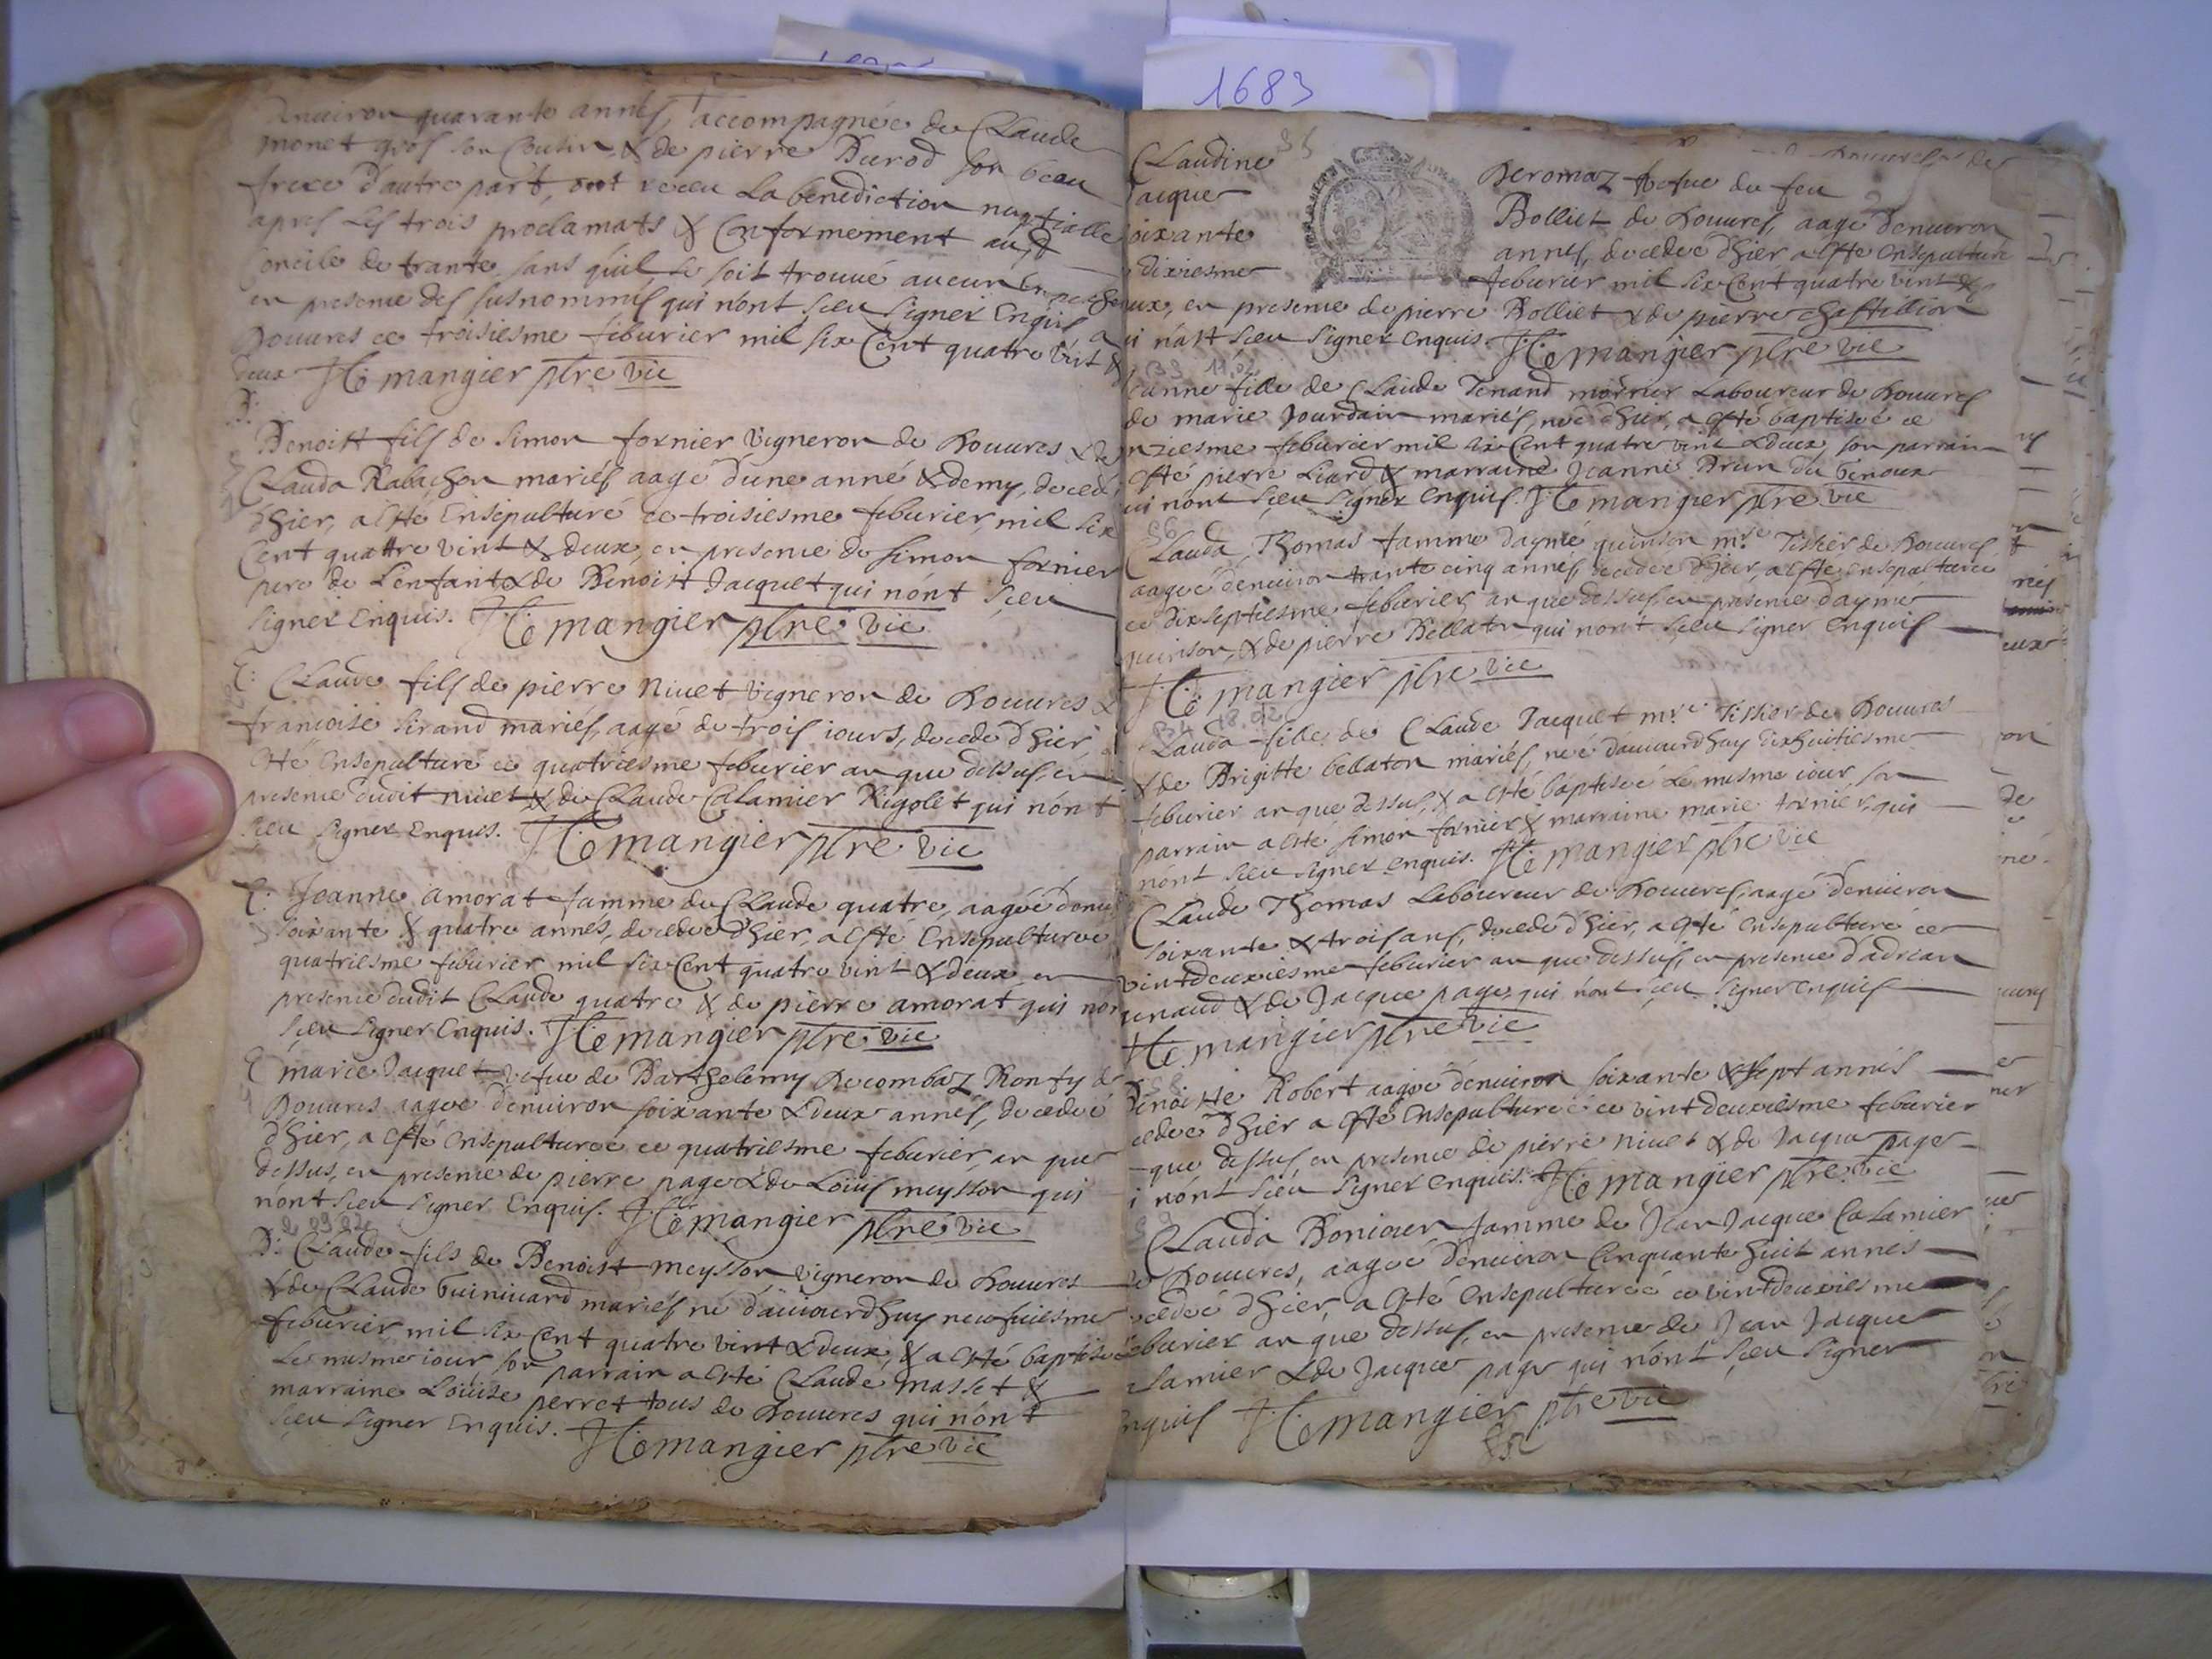 1683
enuiron quarante annés, accompagnée de Claude
monet gros son Cousin, & de pierre Durod son beau
frere d'autre part, ont receu La benediction nuptialle
apres Les trois proclamats & Conformement au
Concile de trante sans qu'il se soit trouué aucun
en presence des susnommés qui n'ont sceu signer Enquis a
Douures ce troisiesme feburier mil six Cent quatre vint &
deux mangier ptre vic
B:
Benoist fils de simon fornier vigneron de Douures & de
Clauda Rabachon mariés aagé d'une anné & demy, decedé
d'hier, a esté Ensepulturé ce troisiesme feburier, mil six
Cent quattre vint & deux en presence de simon fornier
pere de L'enfant & de Benoist Jacquet qui n'ont sceu
signer Enquis. mangier ptre vic
Claude fils de pierre niuet vigneron de Douures &
francoise sirand mariés, aagé de trois iours, decedé d'hier,
esté Ensepulturé ce quatriesme feburier an que dessus, en
presence dudit niuet & de Claude Calamier Rigolet qui n'ont
sceu signer Enquis. mangier ptre vic
Joanne amorat famme de Claude quatre, aagée d'enui
soixante & quatre annés, decedée d'hier, a esté Ensepulturée
quatriesme feburier mil six Cent quatre vint & deux en
presence dudit Claude quatre & de pierre amorat qui non
sceu signer Enquis. mangier ptre vic
marie Jacquet vefue de Barthelemy Decombaz Ronfy de
Douures aagée d'enuiron soixante & deux annés, decedée
d'hier, a esté Ensepulturée ce quatriesme feburier, an que
dessus, en presence de pierre page & de Loüis meysson qui
nont sceu signer Enquis. mangier ptre vic
B: Claude fils de Benoist meysson vigneron de Douures
& de Claude Guinuard mariés né d'auiourdhuy neufuiesme
feburier mil six Cent quatre vint & deux, & a esté baptisé
Le mesme iour son parrain a esté Claude masset &
marraine Loüise perret tous de Douures qui n'ont
sceu signer Enquis. mangier ptre vic
Claudine Deromaz vefue du feu
Jacque Bolliet de Douures, aagé d'enuiron
soixante annés, decedée d'hier a esté Ensepulturé
dixiesme feburier mil six Cent quatre vint &
eux, en presence de pierre Bolliet & de pierre chastillion
ui n'ast sceu signer Enquis. mangier ptre vic
eanne fille de Claude Tenand mornier Laboureur de Douures
de marie Jourdain mariés, née d'hier, a esté baptisée ce
nziesme feburier mil six Cent quatre vint & deux, son parrain
esté pierre Liard & marraine Jeanne Brun du Genoux
ui nont sceu signer Enquis. mangier ptre vic
Clauda Thomas famme d'aymé quinson mre Tissier de Douures
aagée d'enuiron trante cinq annés decedée d'hier, a esté ensepulturée
ce dixseptiesme feburier an que dessus, en presence d'aymé
quinson, & de pierre Bellaton qui n'ont sceu signer Enquis
mangier ptre vic
Clauda fille de Claude Jacquet mre Tissier de Douures
& de Brigitte bellaton mariés, née d'auiourdhuy dixhuitiesme
feburier an que dessus, & a esté baptisée Le mesme iour, son
parrain a esté simon fornier & marraine marie fornier, qui
nont sceu signer enquis. mangier ptre vic
Claude Thomas Laboureur de Douures, aagé d'enuiron
soixante & trois ans, decedé d'hier, a esté Ensepulturé ce
vintdeuxiesme feburier an que dessus, en presence d'adrian
unand & de Jacque page, qui n'ont sceu signer enquis
mangier ptre vic
Benoiste Robert aagée d'enuiron soixante & sept annés
cedée d'hier a esté Ensepulturée ce vintdeuxiesme feburier
que dessus, en presence de pierre niuet & de Jacque page
i n'ont sceu signer enquis. mangier ptre vic
Clauda Boniour famme de Jean Jacque Calamier
de Douures, aagée d'enuiron Cinquante huit annés
cedée d'hier, a esté Ensepulturée ce vintdeuxiesme
eburier an que dessus, en presence de Jean Jacque
lamier & de Jacque page qui n'ont sceu signer
nquis mangier ptre vic